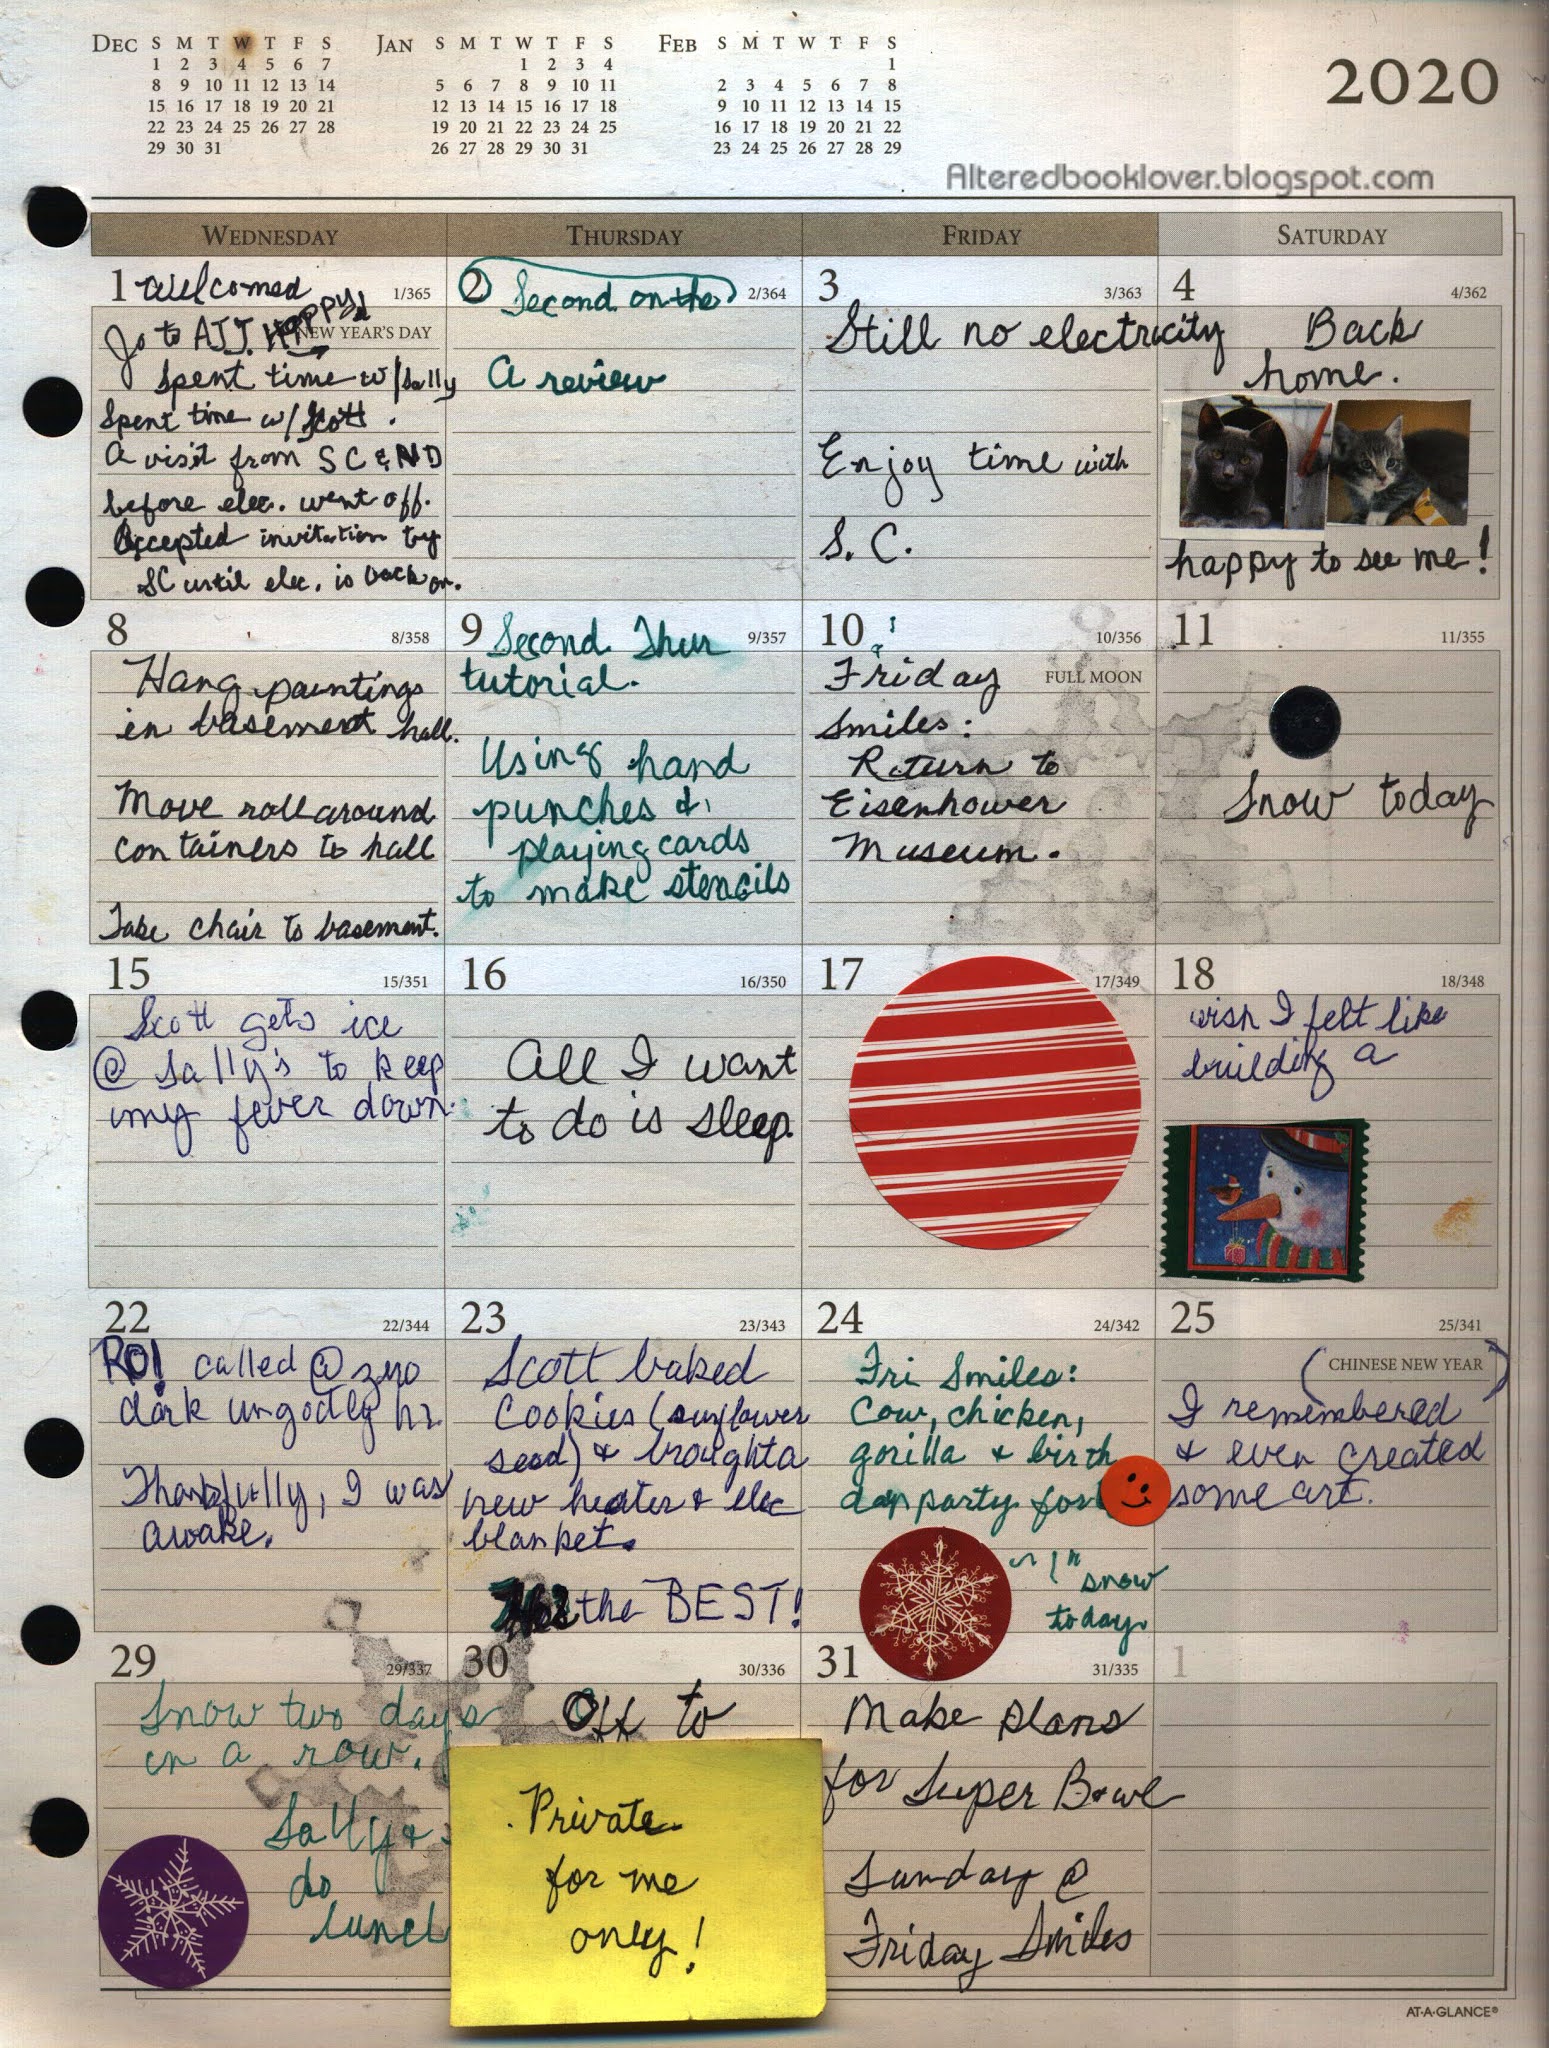 DEC S M T W T F S
1 2 3 4 5 6 7
8 9 10 11 12 13 14
15 16 17 18 19 20 21
22 23 24 25 26 27 28
29 30 31
JAN S M T W T F S
1 2 3 4
5 6 7 8 9 10 11
12 13 14 15 16 17 18
19 20 21 22 23 24 25
26 27 28 29 30 31
FEB S M T W T F S
1
2 3 4 5 6 7 8
9 10 11 12 13 14 15
16 17 18 19 20 21 22
23 24 25 26 27 28 29
2020
Alteredbooklover.blogspot.com
WEDNESDAY THURSDAY FRIDAY SATURDAY
1 Welcomed 1/365
Jo to AJJ. Happy
NEW YEAR'S DAY
Spent time w/ Sally
Spent time w/ Scott.
A visit from SC & ND
before elec. went off.
Accepted invitation by
SC until elec. is back on.
2 Second on the 2/364
A review
3 3/363
Still no electricity
Enjoy time with
S. C.
4 4/362
Back
home.
happy to see me!
8 8/358
Hang paintings
in basement hall.
Move roll around
containers to hall
Take chair to basement.
9 Second Thur 9/357
tutorial.
Using hand
punches &
playing cards
to make stencils
10 10/356
FULL MOON
Friday
Smiles:
Return to
Eisenhower
Museum.
11 11/355
Snow today
15 15/351
Scott gets ice
@ Sally's to keep
my fever down.
16 16/350
All I want
to do is sleep.
17 17/349
18 18/348
wish I felt like
building a
22 22/344
RO! called @ zero
dark ungodly hr
Thankfully, I was
awake.
23 23/343
Scott baked
cookies (sunflower
seed) & brought a
new heater & elec
blanket.
He's the BEST!
24 24/342
Fri Smiles:
Cow, chicken,
gorilla & birth
day party for
~ 1" snow
today
25 25/341
(CHINESE NEW YEAR)
I remembered
& even created
some art.
29 29/337
Snow two days
in a row.
Sally &
do
lunch
30 30/336
Off to
Private
for me
only!
31 31/335
Make plans
for Super Bowl
Sunday @
Friday Smiles
1
AT-A-GLANCE®